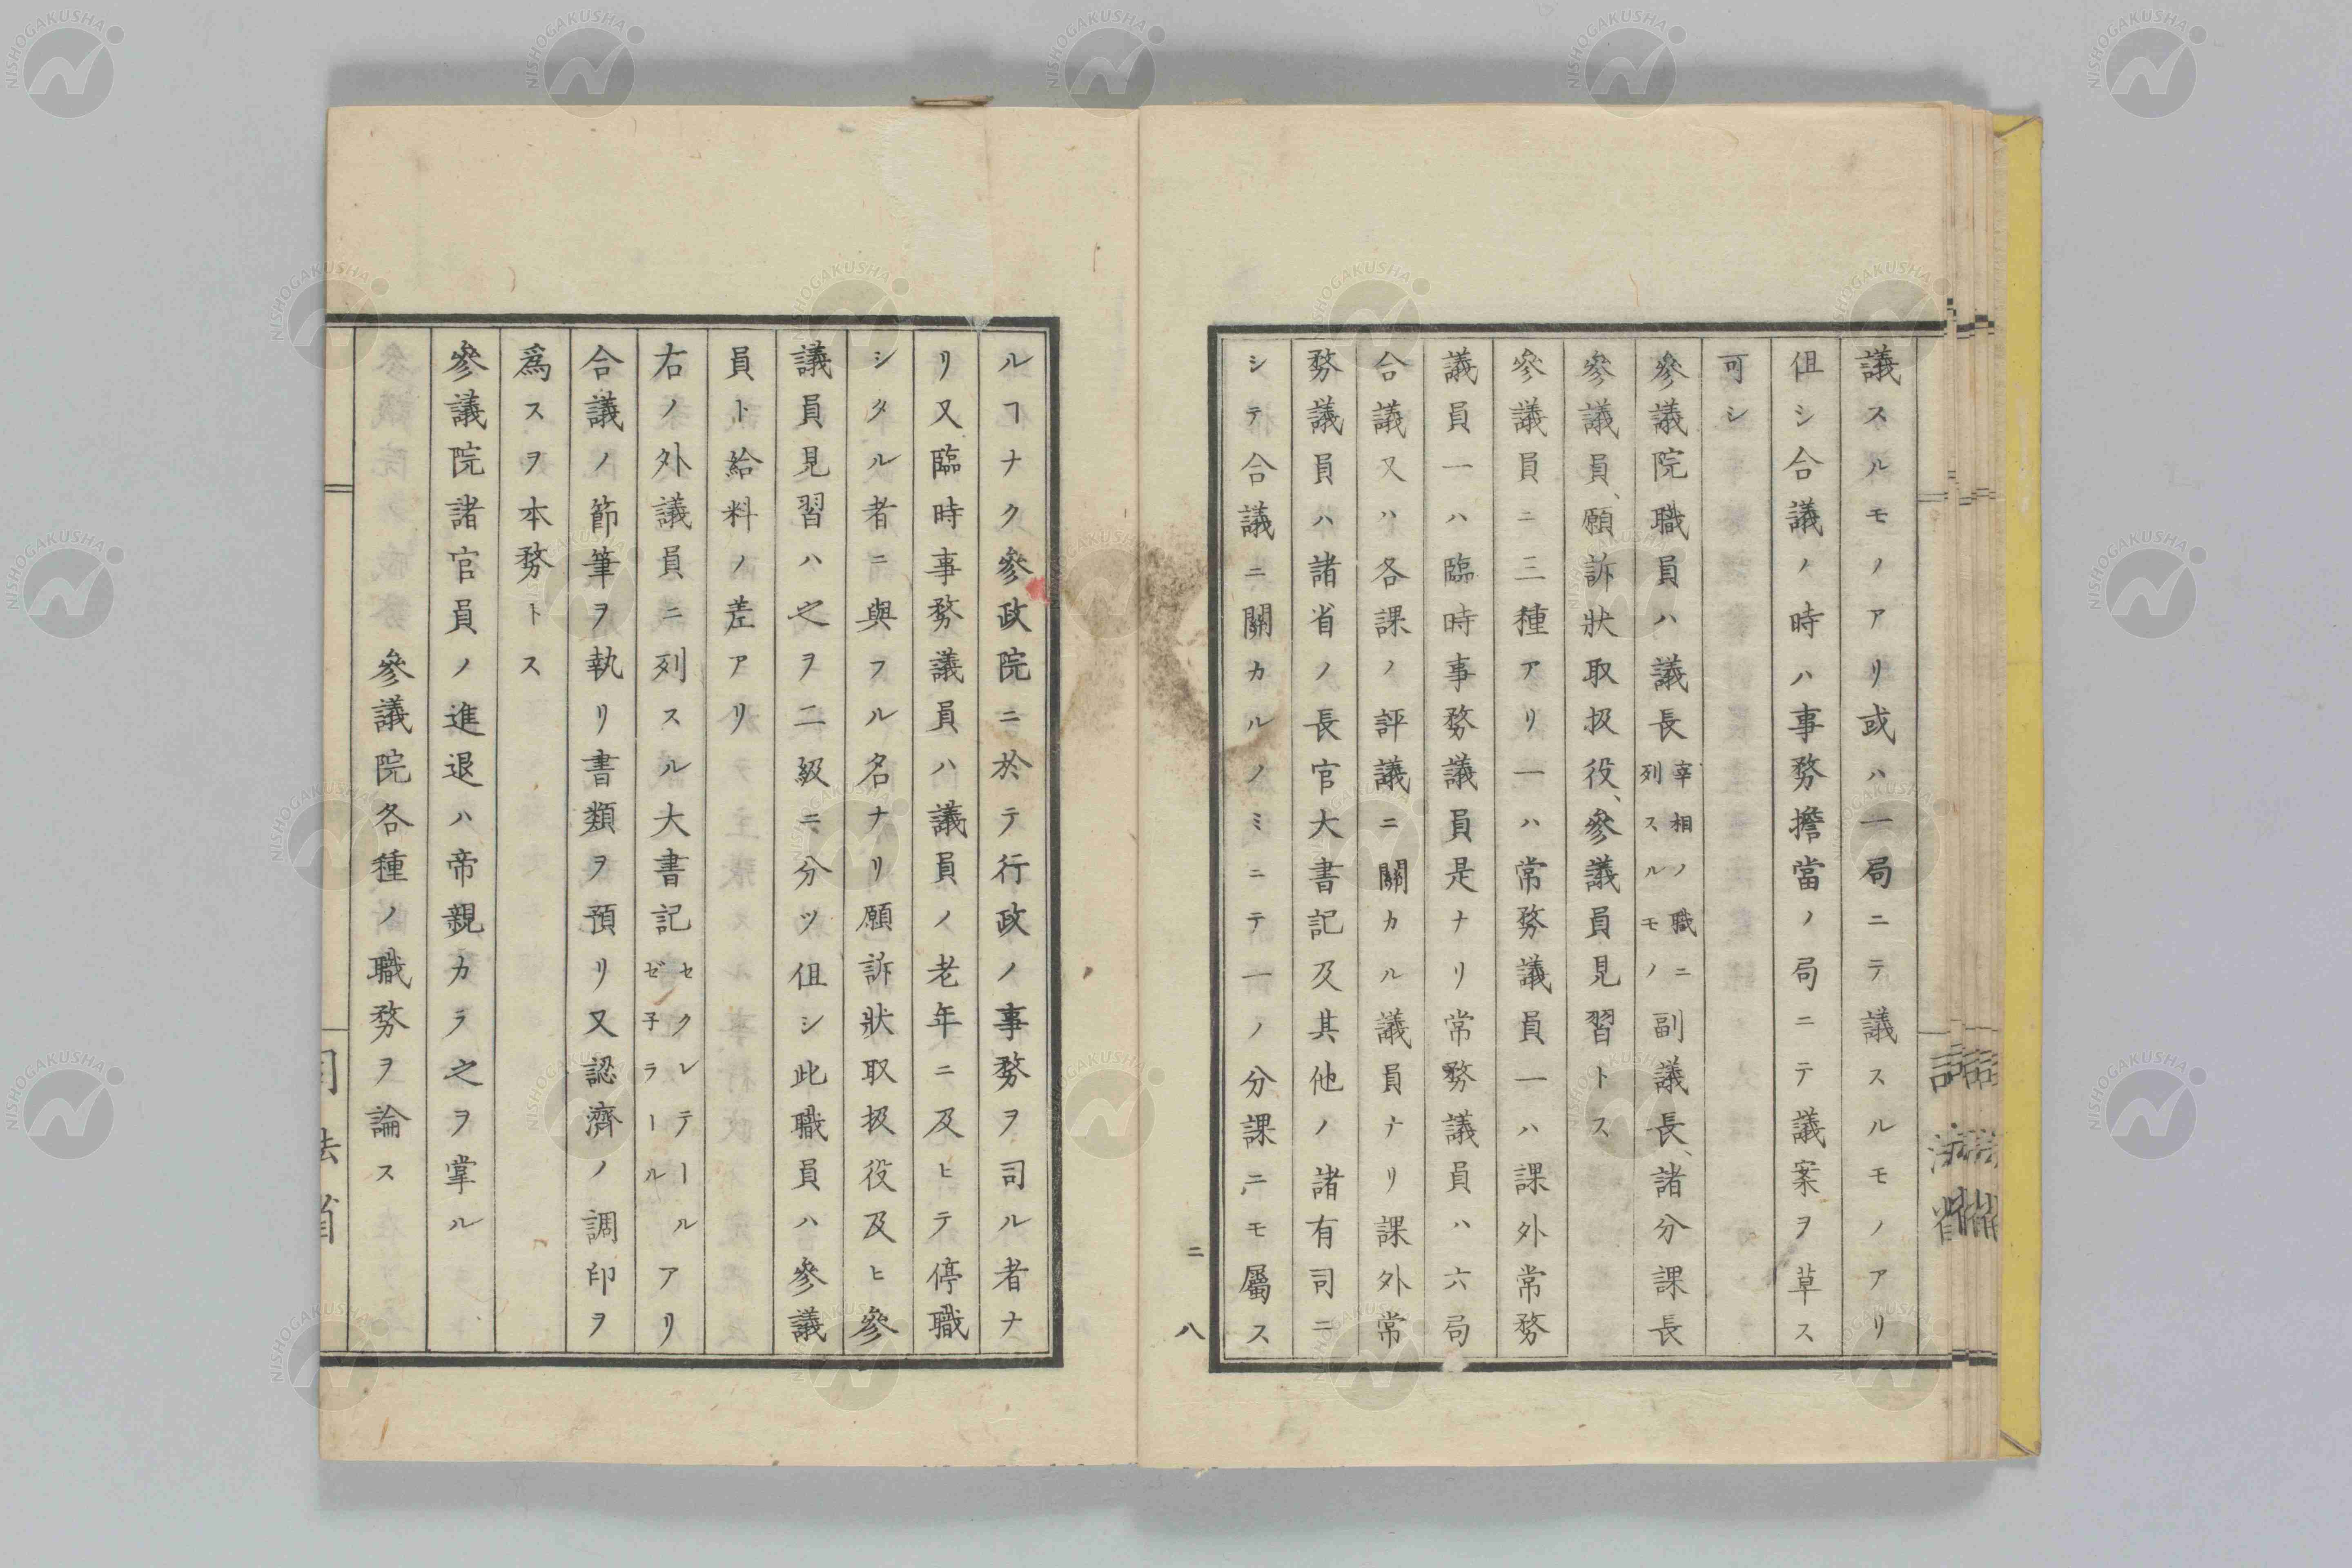 議スルモノアリ或ハ一局ニテ議スルモノアリ
伹シ合議ノ時ハ事務擔當ノ局ニテ議案ヲ草ス
可シ
參議院職員ハ議長宰相ノ職ニ列スルモノ副議長、諸分課長
參議員、願訴狀取扱役、參議員見習トス
參議員ニ三種アリ一ハ常務議員一ハ課外常務
議員一ハ臨時事務議員是ナリ常務議員ハ六局
合議又ハ各課ノ評議ニ關カル議員ナリ課外常
務議員ハ諸省ノ長官大書記及其他ノ諸有司ニ
シテ合議ニ關カルノミニテ一ノ分課ニモ屬ス
二八
ルヿナク參政院ニ於テ行政ノ事務ヲ司ル者ナ
リ又臨時事務議員ハ議員ノ老年ニ及ヒテ停職
シタル者ニ與フル名ナリ願訴狀取扱役及ヒ參
議員見習ハ之ヲ二級ニ分ツ伹シ此職員ハ參議
員ト給料ノ差アリ
右ノ外議員ニ列スル大書記セクレテールゼ子ラールアリ
合議ノ節筆ヲ執リ書類ヲ預リ又認濟ノ調印ヲ
爲スヲ本務トス
參議院諸官員ノ進退ハ帝親カラ之ヲ掌ル
參議院各種ノ職務ヲ論ス
司法省
NISHOGAKUSHA